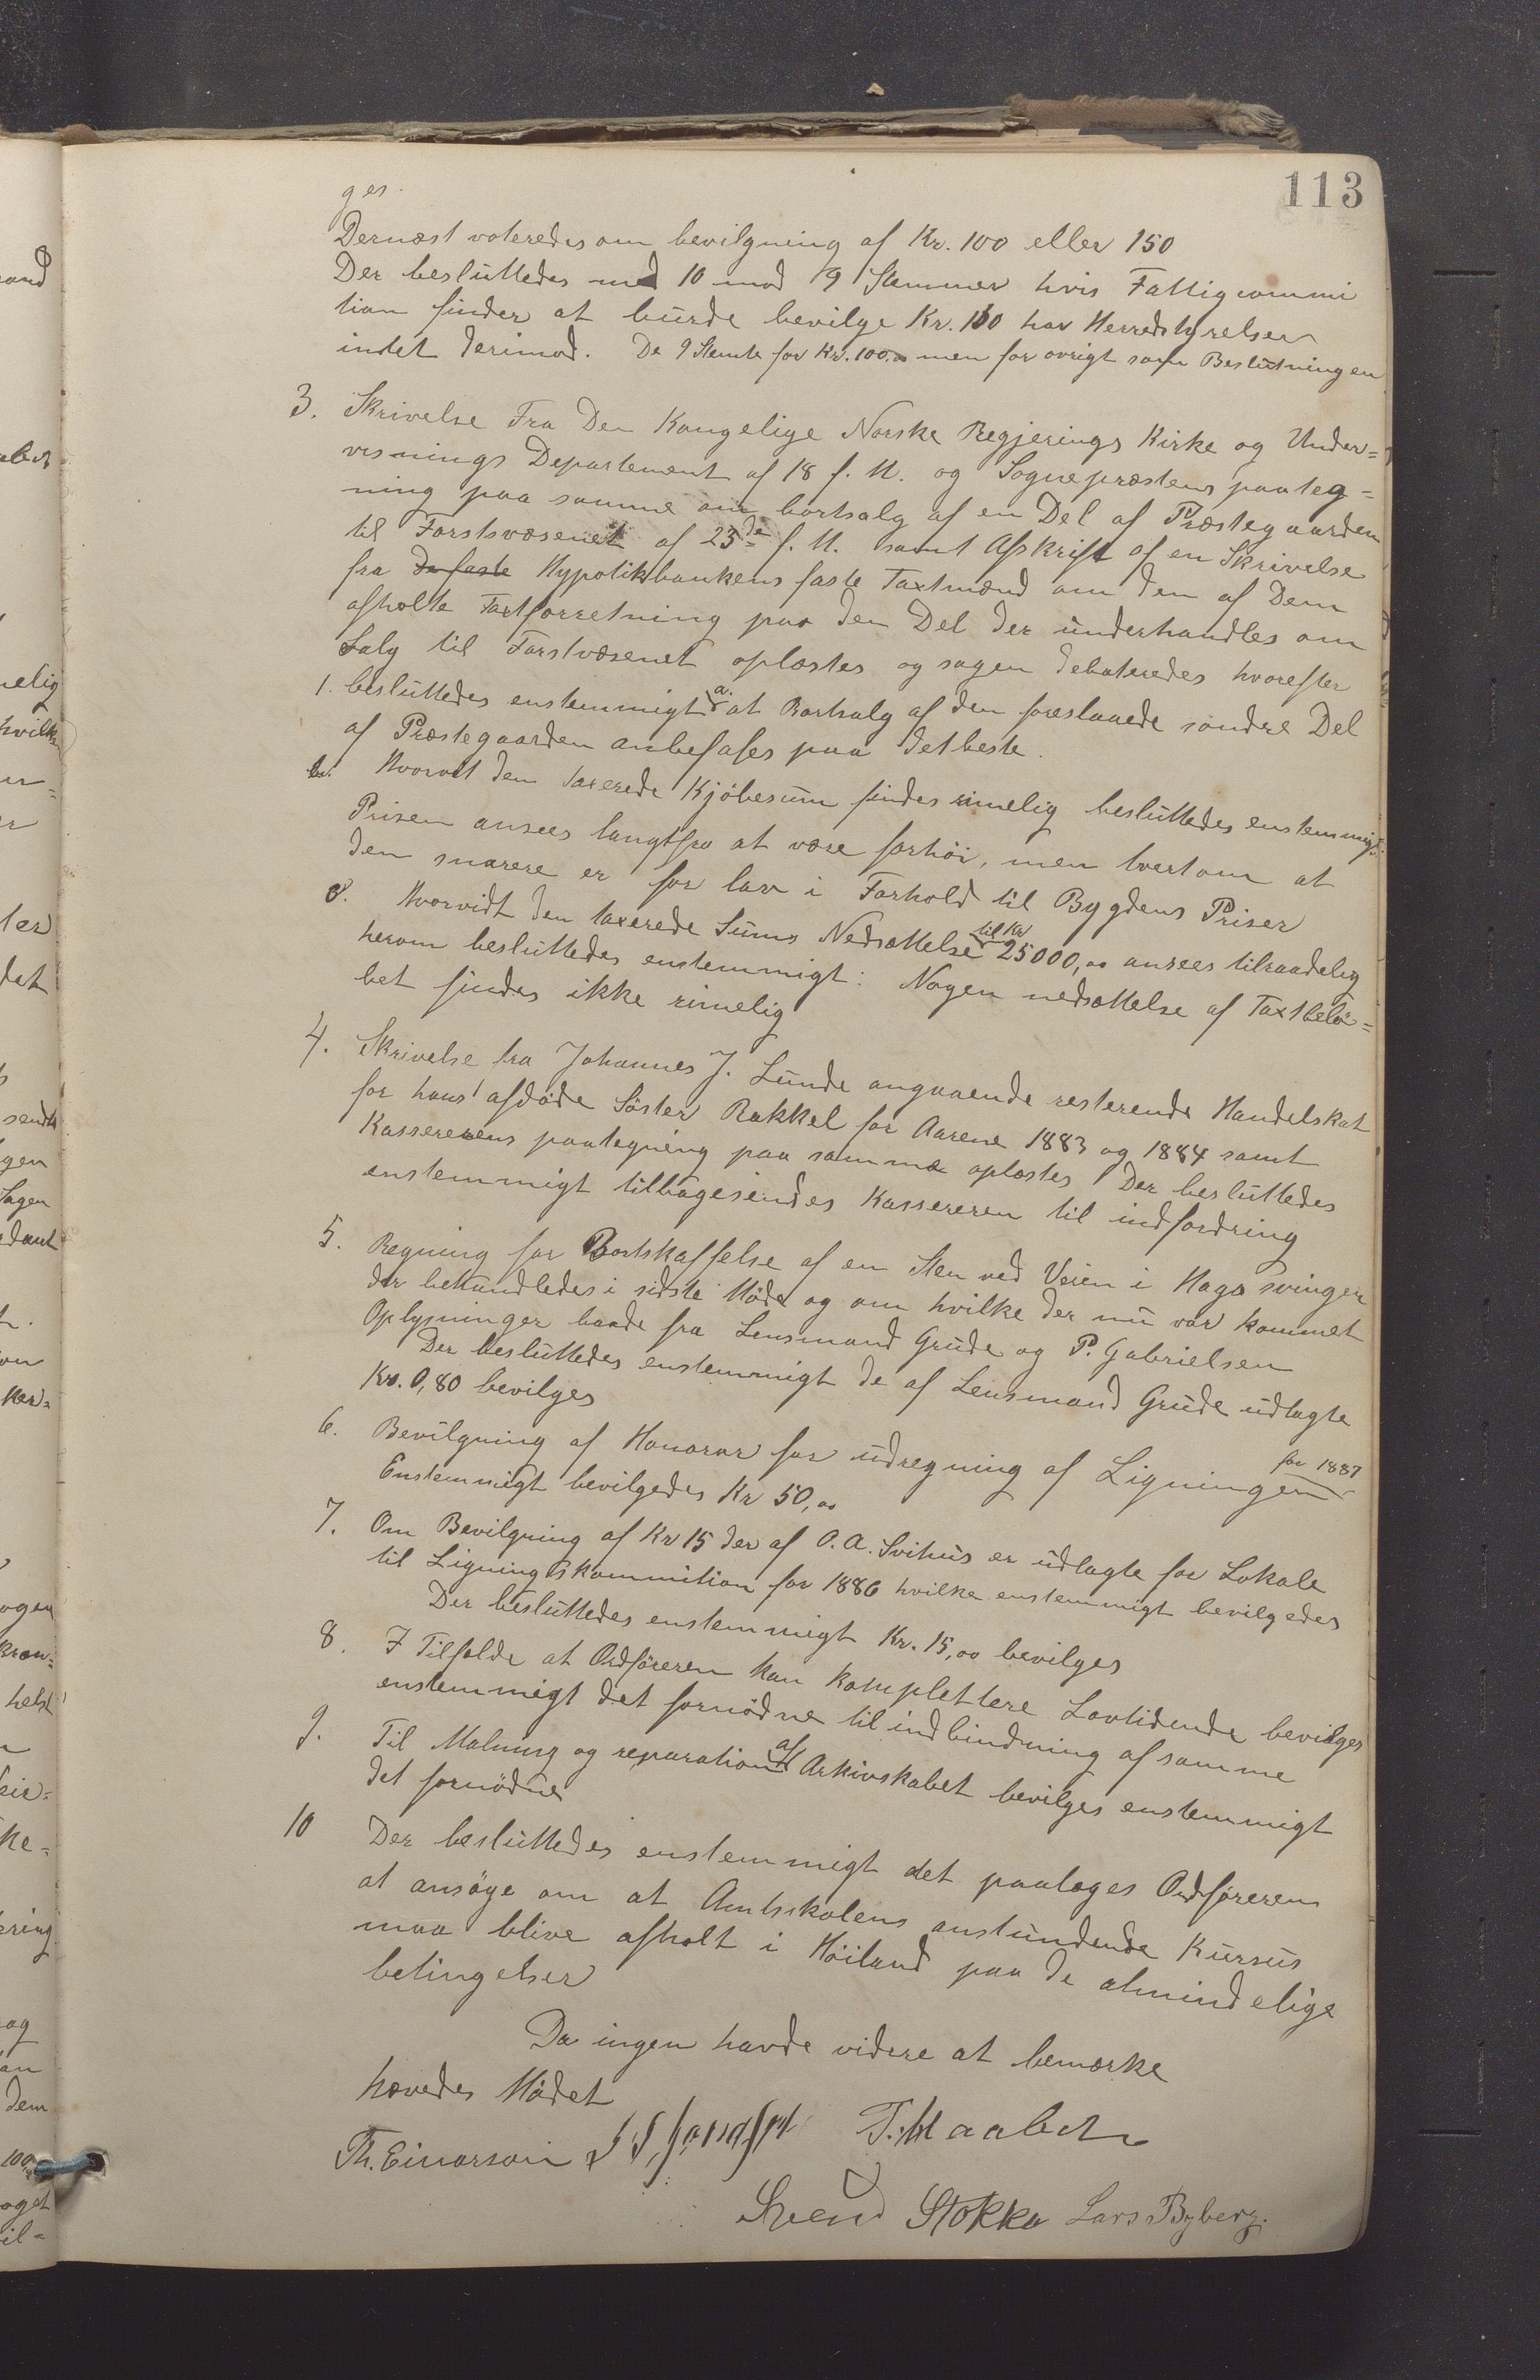 113
ges.
Dernæst voteredes om bevilgning af Kr. 100 eller 150
Der besluttedes med 10 mod 9 Stemmer hvis Fattigcommi
tion finder at burde bevilge Kr. 150 har Herredstyrelsen
intet derimod. De 9 Stemte for Kr. 100,00 men for øvrigt som Beslutningen
3. Skrivelse Fra Den Kongelige Norske Regjerings Kirke og Under=
visnings Departement af 18 f. M. og Sognepræstens paateg=
ning paa samme om bortsalg af en Del af Præstegaarden
til Forstvæsenet af 23de f. M. samt Afskrift af en Skrivelse
fra De faste Hypotikbankens faste Taxtmænd om den af Dem
afholte Taxtforretning paa den Del der underhandles om
Salg til Forstvæsenet oplæstes og sagen debateredes hvorefter
1. besluttedes enstemmigt a. at Bortsalg af den foreslaaede søndre Del
af Præstegaarden anbefales paa det beste.
b. Hvorvit den taxerede Kjøbesum findes rimelig besluttedes enstemmigt:
Prisen ansees langtfra at være forhøi, men tvertom at
den snarere er for lav i Forhold til Bygdens Priser
c. Hvorvidt den taxerede Sums Nedsættelse til Kr 25000,00 ansees tilraadelig
herom besluttedes enstemmigt: Nogen nedsættelse af Taxtbelø=
bet findes ikke rimelig
4. Skrivelse fra Johannes J. Lunde angaaende resterende Handelskat
for hans afdøde Søster Rakkel for Aarene 1883 og 1884 samt
Kassererens paategning paa samme oplæstes Der besluttedes
enstemmigt tilbagesendes Kassereren til indfordring
5. Regning for Bortskaffelse af en Sten ved Veien i Haga svingen
der behandledes i sidste Møde og om hvilke der nu var kommet
Oplysninger baade fra Lensmand Grude og P. Gabrielsen
Der besluttedes enstemmigt de af Lensmand Grude udlagte
Kr. 0,80 bevilges
6. Bevilgning af Honorar for udregning af Ligningen for 1887
Enstemmigt bevilgedes Kr 50,00
7. Om Bevilgning af Kr 15 der af O. A. Svihus er udlagte for Lokale
til Ligningskommition for 1886 hvilke enstemmigt bevilgedes
Der besluttedes enstemmigt Kr. 15,00 bevilges
8. I Tilfælde at Ordføreren kan komplettere Lovtidende bevilges
enstemmigt det fornødne til indbindning af samme
9. Til Malning og reparation af Arkivskabet bevilges enstemmigt
det fornødne
10 Der besluttedes enstemmigt det paalæges Ordføreren
at ansøge om at Amtsskolens anstundende Kursus
maa blive afholt i Høiland paa de almindelige
betingelser
Da ingen havde videre at bemærke
hævedes Mødet
Th. Einarson T. Maaland
Svend Stokka Lars Byberg.